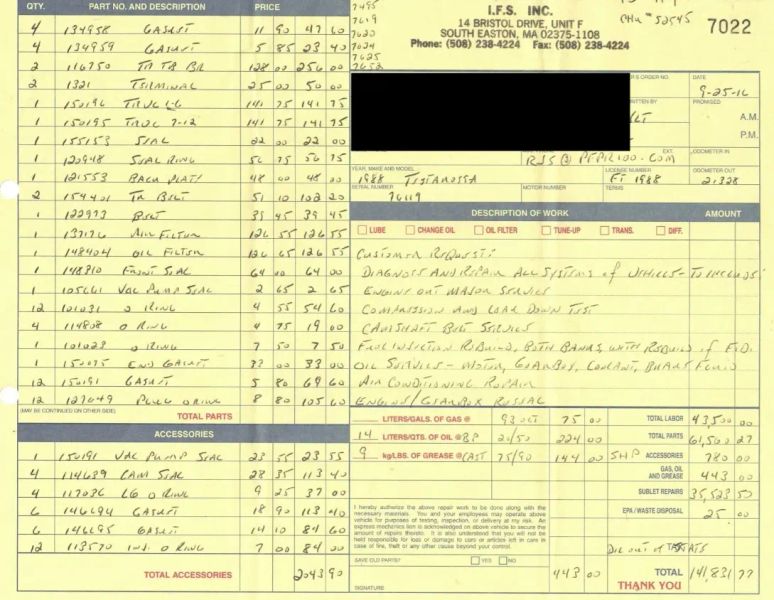 QTY. PART NO. AND DESCRIPTION PRICE
4 134958 GASKET 11 90 47 60
4 134959 GASKET 5 85 23 40
2 116750 128 00 256 00
2 1321 TERMINAL 25 00 50 00
1 150196 141 75 141 75
1 150195 7-12 141 75 141 75
1 155153 SEAL 22 00 22 00
1 120948 SEAL RING 56 75 56 75
1 121553 BACK PLATE 48 00 48 00
2 154401 BELT 51 10 102 20
1 122973 BELT 39 45 39 45
1 137176 AIR FILTER 126 55 126 55
1 148404 OIL FILTER 126 55
1 148310 FRONT SEAL 64 00 64 00
1 105661 VAC PUMP SEAL 2 65 2 65
12 101031 O RING 4 55 54 60
4 114808 O RING 4 75 19 00
1 101023 O RING 7 50 7 50
1 150075 END GASKET 33 00 33 00
12 150191 GASKET 5 80 69 60
12 127049 PLUG O RING 8 80 105 60
(MAY BE CONTINUED ON OTHER SIDE)
TOTAL PARTS
ACCESSORIES
1 150191 VAC PUMP SEAL 23 55 23 55
4 114639 CAM SEAL 28 35 113 40
4 117036 LG O RING 9 25 37 00
6 146694 GASKET 18 90 113 40
6 146695 GASKET 14 10 84 60
12 113570 INJ. O RING 7 00 84 00
TOTAL ACCESSORIES 2043 90
7495
7619
7620
7624
7625
7652
I.F.S. INC.
14 BRISTOL DRIVE, UNIT F
SOUTH EASTON, MA 02375-1108
Phone: (508) 238-4224 Fax: (508) 238-4224
52545
7022
ORDER NO. DATE
9-25-16
PROMISED
A.M.
P.M.
EXT. ODOMETER IN
RJS@PFPR100.COM
YEAR, MAKE AND MODEL LICENSE NUMBER ODOMETER OUT
1988 TESTAROSSA FT 1988 21328
SERIAL NUMBER MOTOR NUMBER TERMS
76119
DESCRIPTION OF WORK AMOUNT
LUBE CHANGE OIL OIL FILTER TUNE-UP TRANS. DIFF.
CUSTOMER REQUEST:
DIAGNOSE AND REPAIR ALL SYSTEMS OF VEHICLE - TO INCLUDE:
ENGINE OUT MAJOR SERVICE
COMPRESSION AND LEAK DOWN TEST
CAMSHAFT BELT SERVICE
FUEL INJECTION REBUILD, BOTH BANKS, WITH REBUILD OF F.D.
OIL SERVICE - MOTOR, GEARBOX, COOLANT, BRAKE FLUID
AIR CONDITIONING REPAIR
ENGINE/GEARBOX RESEAL
LITERS/GALS. OF GAS @ 93 OCT 75 00
14 LITERS/QTS. OF OIL @ BP 20/50 224 00
9 kg/LBS. OF GREASE @ CAST 75/90 144 00
TOTAL LABOR 43,500 00
TOTAL PARTS 61,500 27
SHP ACCESSORIES 780 00
GAS, OIL AND GREASE 443 00
SUBLET REPAIRS 35,523 50
EPA/WASTE DISPOSAL 25 00
I hereby authorize the above repair work to be done along with the necessary materials. You and your employees may operate above vehicle for purposes of testing, inspection, or delivery at my risk. An express mechanics lien is acknowledged on above vehicle to secure the amount of repairs thereto. It is also understood that you will not be held responsible for loss or damage to cars or articles left in cars in case of fire, theft or any other cause beyond your control.
SAVE OLD PARTS? YES NO
SIGNATURE
443 00
OUT OF
TOTAL 141,831 77
THANK YOU